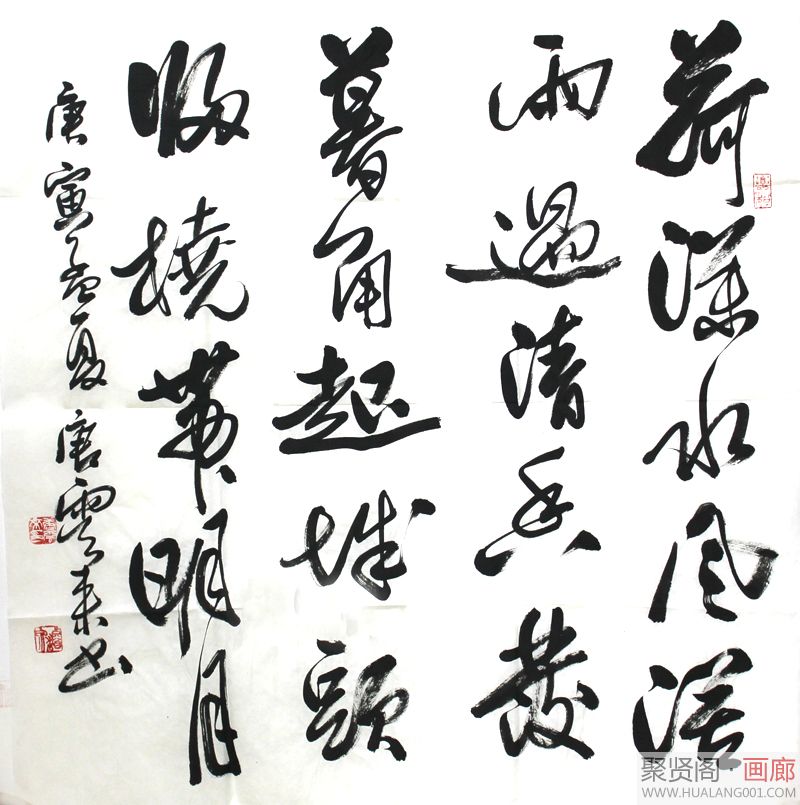 荷深水風濶
雨過清香發
暮角起城頭
歸橈帶明月
庚寅孟夏 唐雲來書
聚贤阁·画廊
WWW.HUALANG001.COM